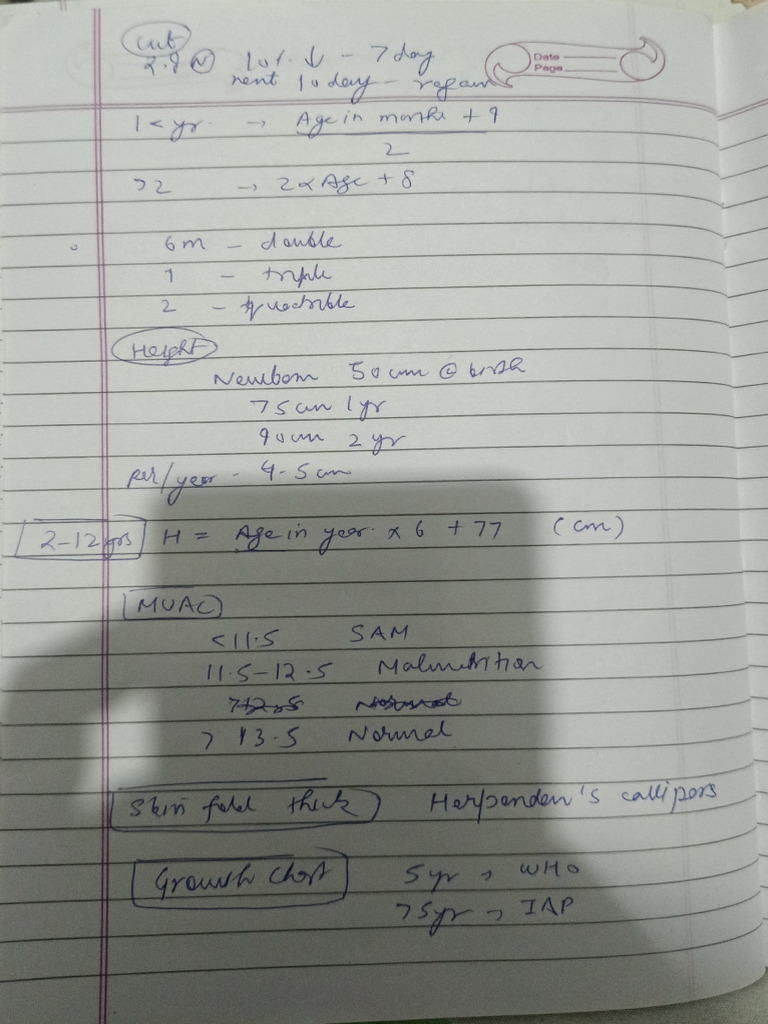 Wt
2.8 (N) 10% ↓ - 7 day
next 10 day - regain
Date
Page
1 < yr. → Age in months + 9
2
>2 → 2 x Age + 8
6m - double
1 - triple
2 - quadrible
Height
Newborn 50 cm @ birth
75 cm 1 yr
90 cm 2 yr
per/year - 4-5 cm
2-12 yrs H = Age in year x 6 + 77 (cm)
MUAC
<11.5 SAM
11.5-12.5 Malnutrition
>12.5 Normal
> 13.5 Normal
Skin fold thick Herpenden's callipers
Growth chart 5yr → WHO
>5yr → IAP